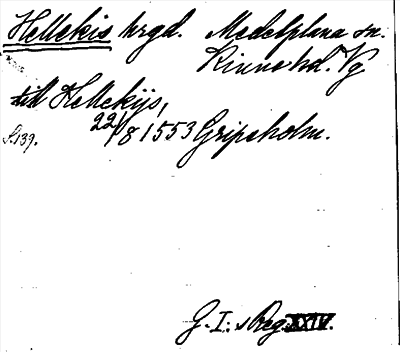 Hellekis hrgd. Medelplana sn.
Kinne hd. Vg
till Hellekijs,
S. 139. 22/8 1553 Gripsholm.
G. I:s Reg. XXIV.